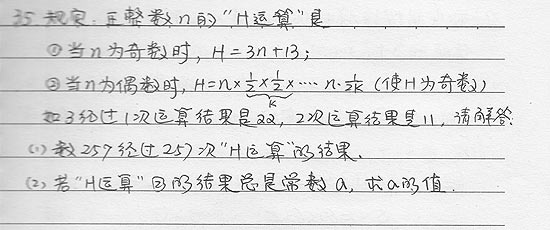 35. 规定：正整数n的“H运算”是
①当n为奇数时，H=3n+13；
②当n为偶数时，H=n×½×½×…… n·½k (使H为奇数)
k
如3经过1次运算结果是22，2次运算结果是11，请解答：
(1) 数257经过257次“H运算”的结果.
(2) 若“H运算”②的结果总是常数a，求a的值.